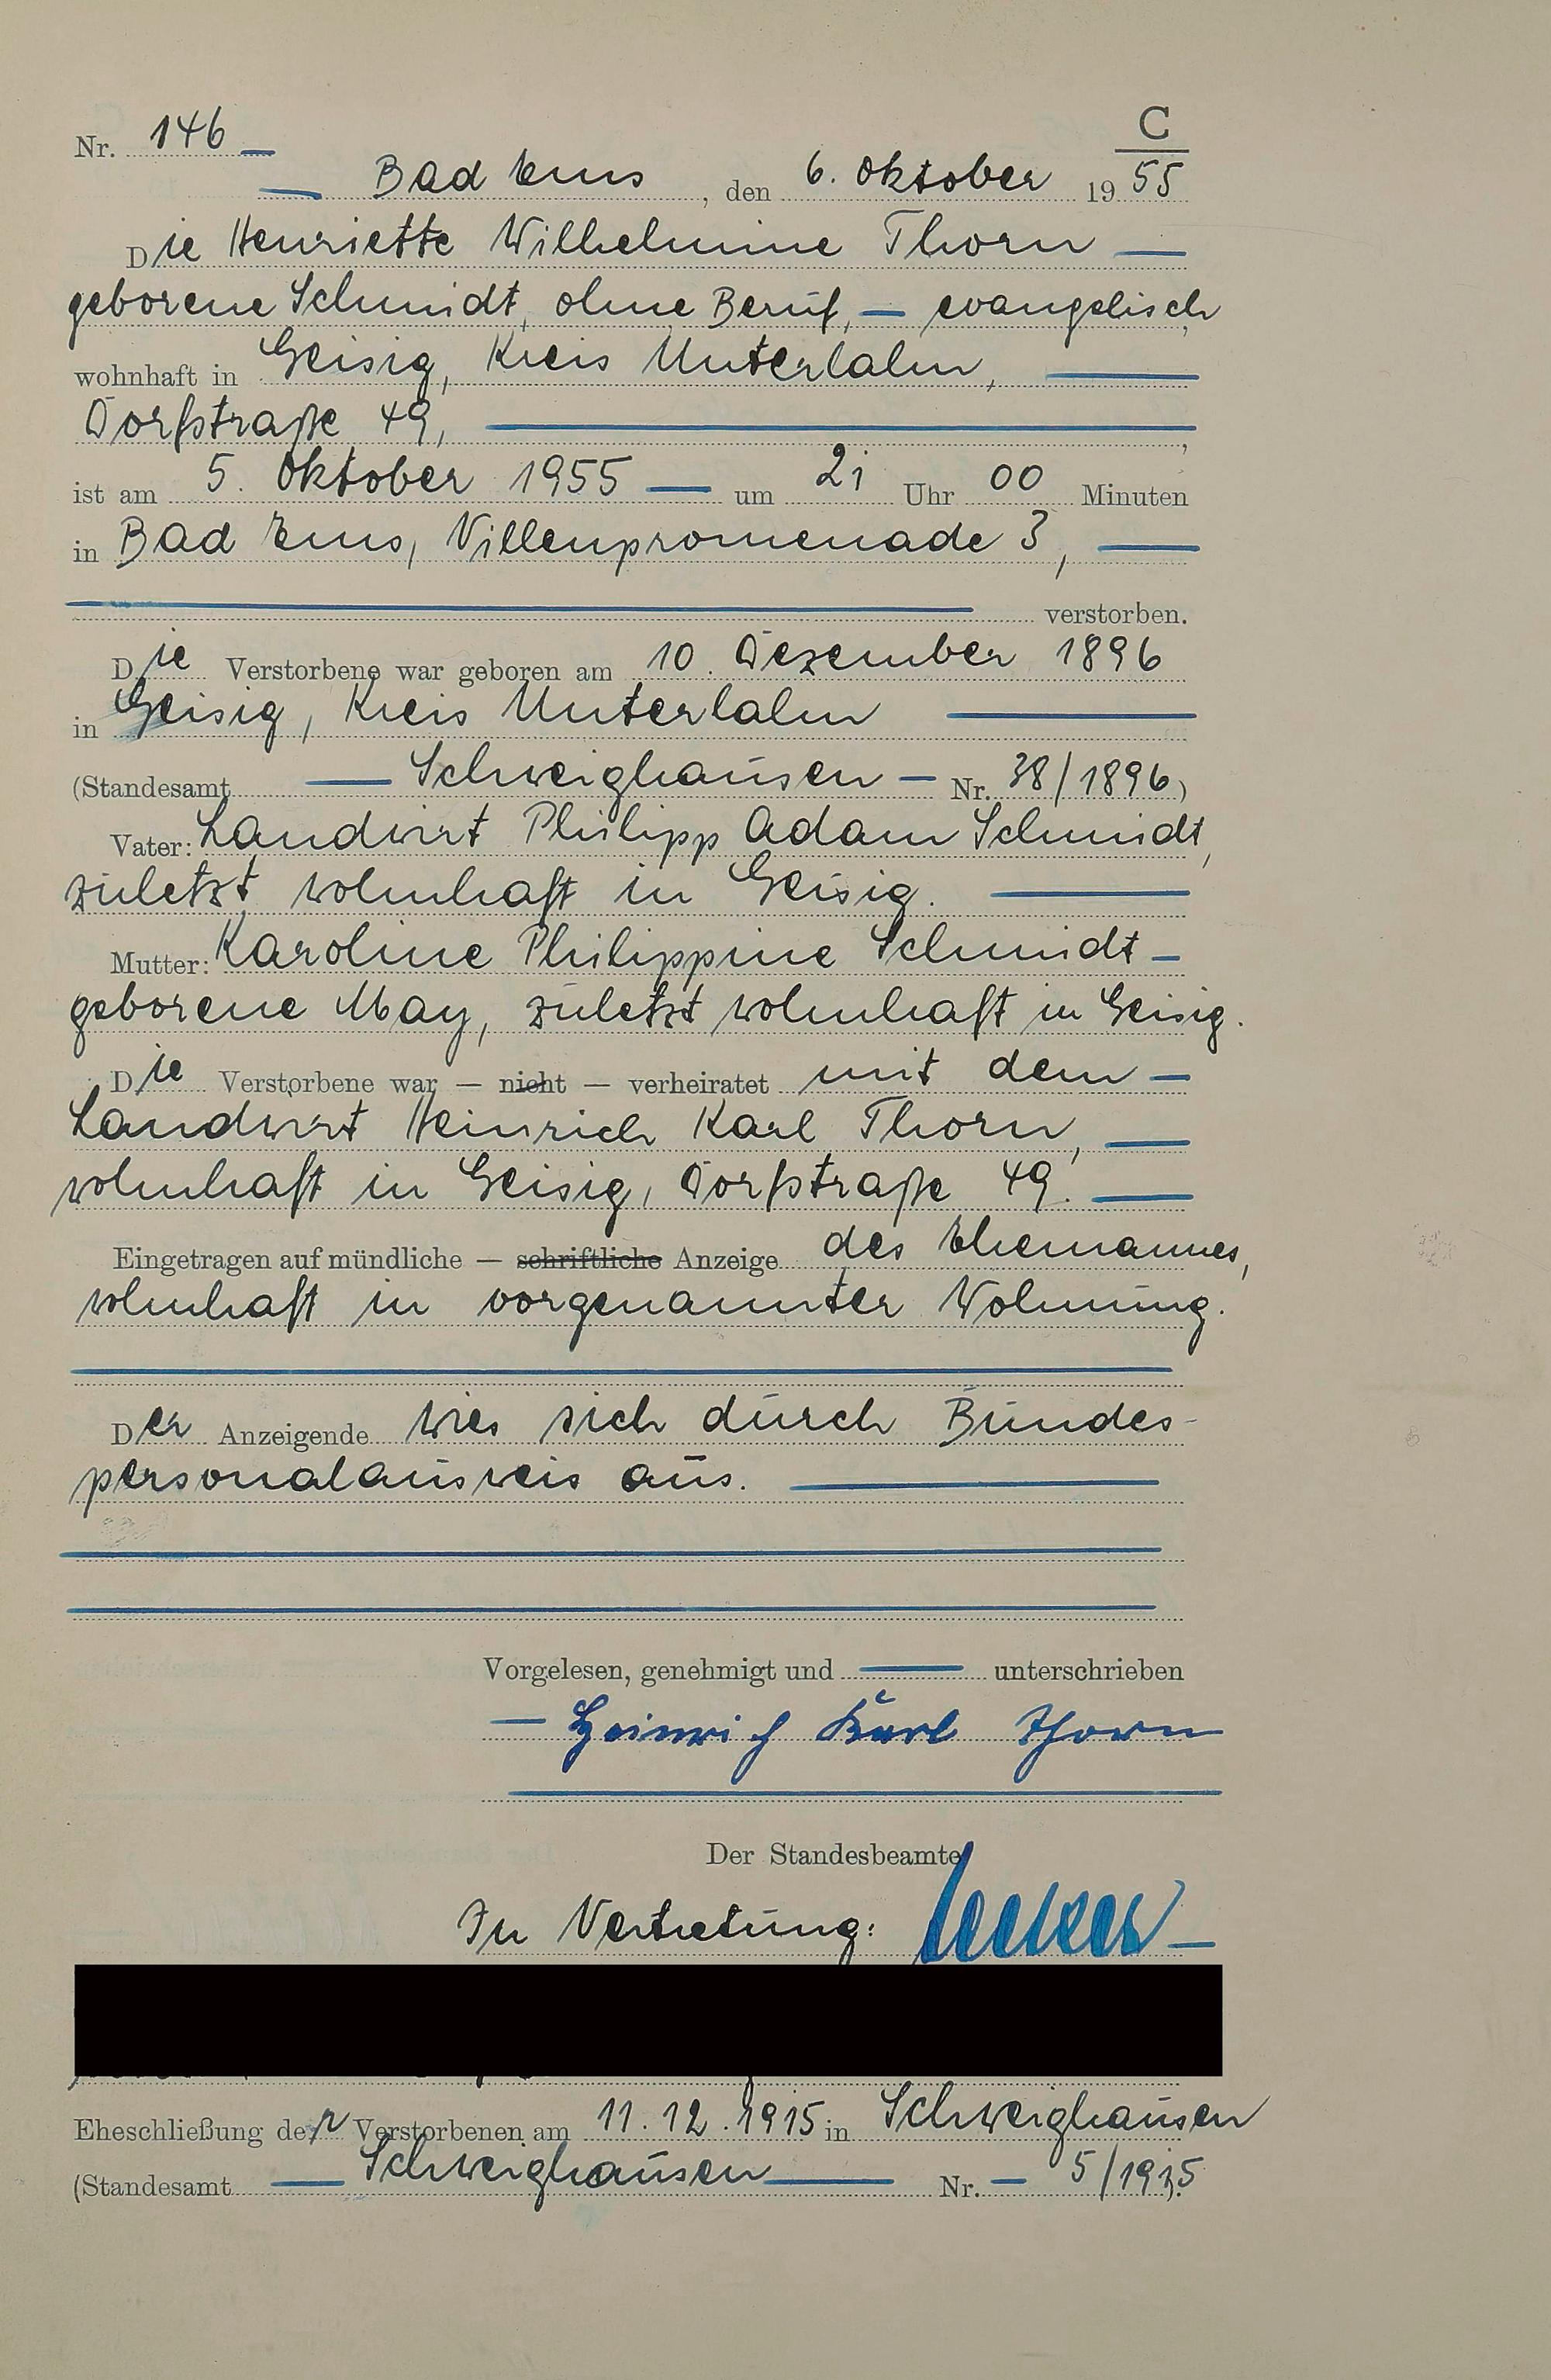 C
Nr. 146
Bad Ems, den 6. Oktober 1955
Die Henriette Wilhelmine Thorn
geborene Schmidt, ohne Beruf, — evangelisch,
wohnhaft in Geisig, Kreis Unterlahn,
Dorfstraße 49,
ist am 5. Oktober 1955 — um 21 Uhr 00 Minuten
in Bad Ems, Villenpromenade 3,
verstorben.
Die Verstorbene war geboren am 10. Dezember 1896
in Geisig, Kreis Unterlahn
(Standesamt — Schweighausen — Nr. 38/1896)
Vater: Landwirt Philipp Adam Schmidt,
zuletzt wohnhaft in Geisig.
Mutter: Karoline Philippine Schmidt —
geborene May, zuletzt wohnhaft in Geisig.
Die Verstorbene war — nicht — verheiratet mit dem —
Landwirt Heinrich Karl Thorn,
wohnhaft in Geisig, Dorfstraße 49.
Eingetragen auf mündliche — schriftliche Anzeige des Ehemannes,
wohnhaft in vorgenannter Wohnung.
Der Anzeigende wies sich durch Bundes-
personalausweis aus.
Vorgelesen, genehmigt und — unterschrieben
— Heinrich Karl Thorn
Der Standesbeamte
In Vertretung:
Eheschließung der Verstorbenen am 11.12.1915 in Schweighausen
(Standesamt — Schweighausen — Nr. — 5/1915).